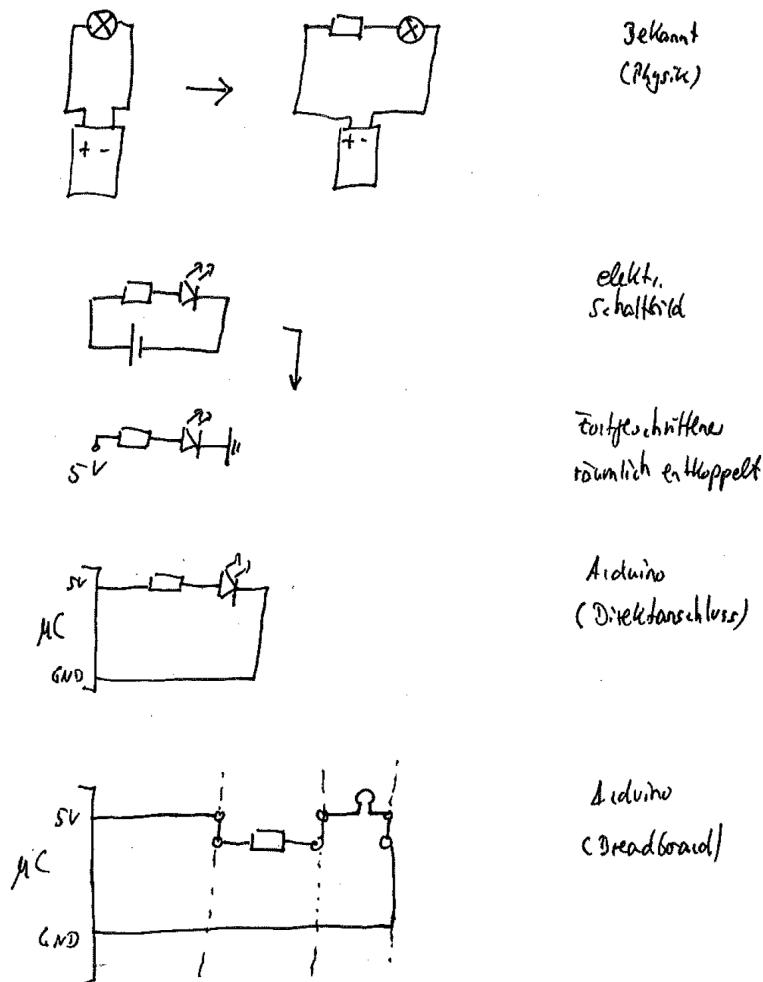 + -
+ -
Bekannt
(Physik)
elektr.
Schaltbild
5V
Fortgeschrittener
räumlich entkoppelt
5V
µC
GND
Arduino
(Direktanschluss)
5V
µC
GND
Arduino
(Breadboard)